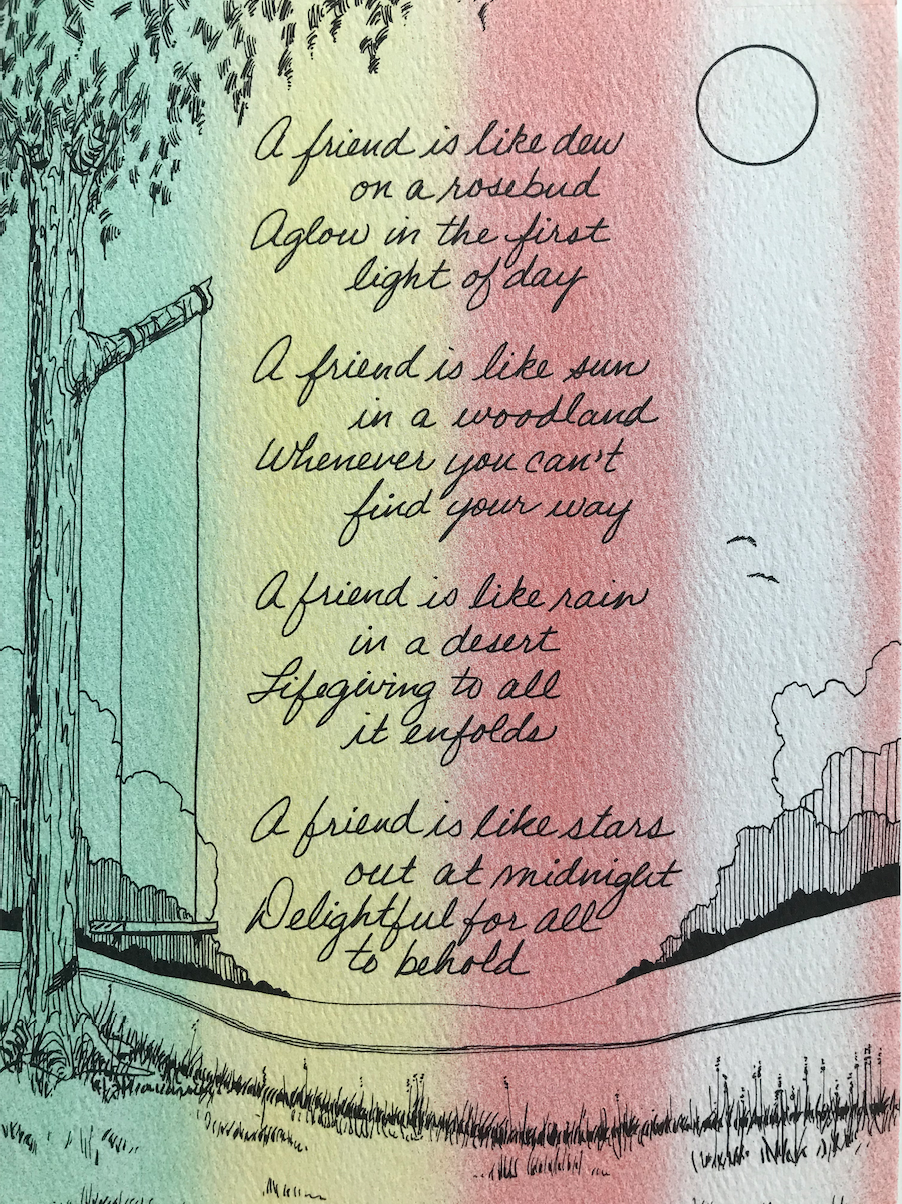 A friend is like dew
on a rosebud
Aglow in the first
light of day
A friend is like sun
in a woodland
Whenever you can't
find your way
A friend is like rain
in a desert
Lifegiving to all
it enfolds
A friend is like stars
out at midnight
Delightful for all
to behold